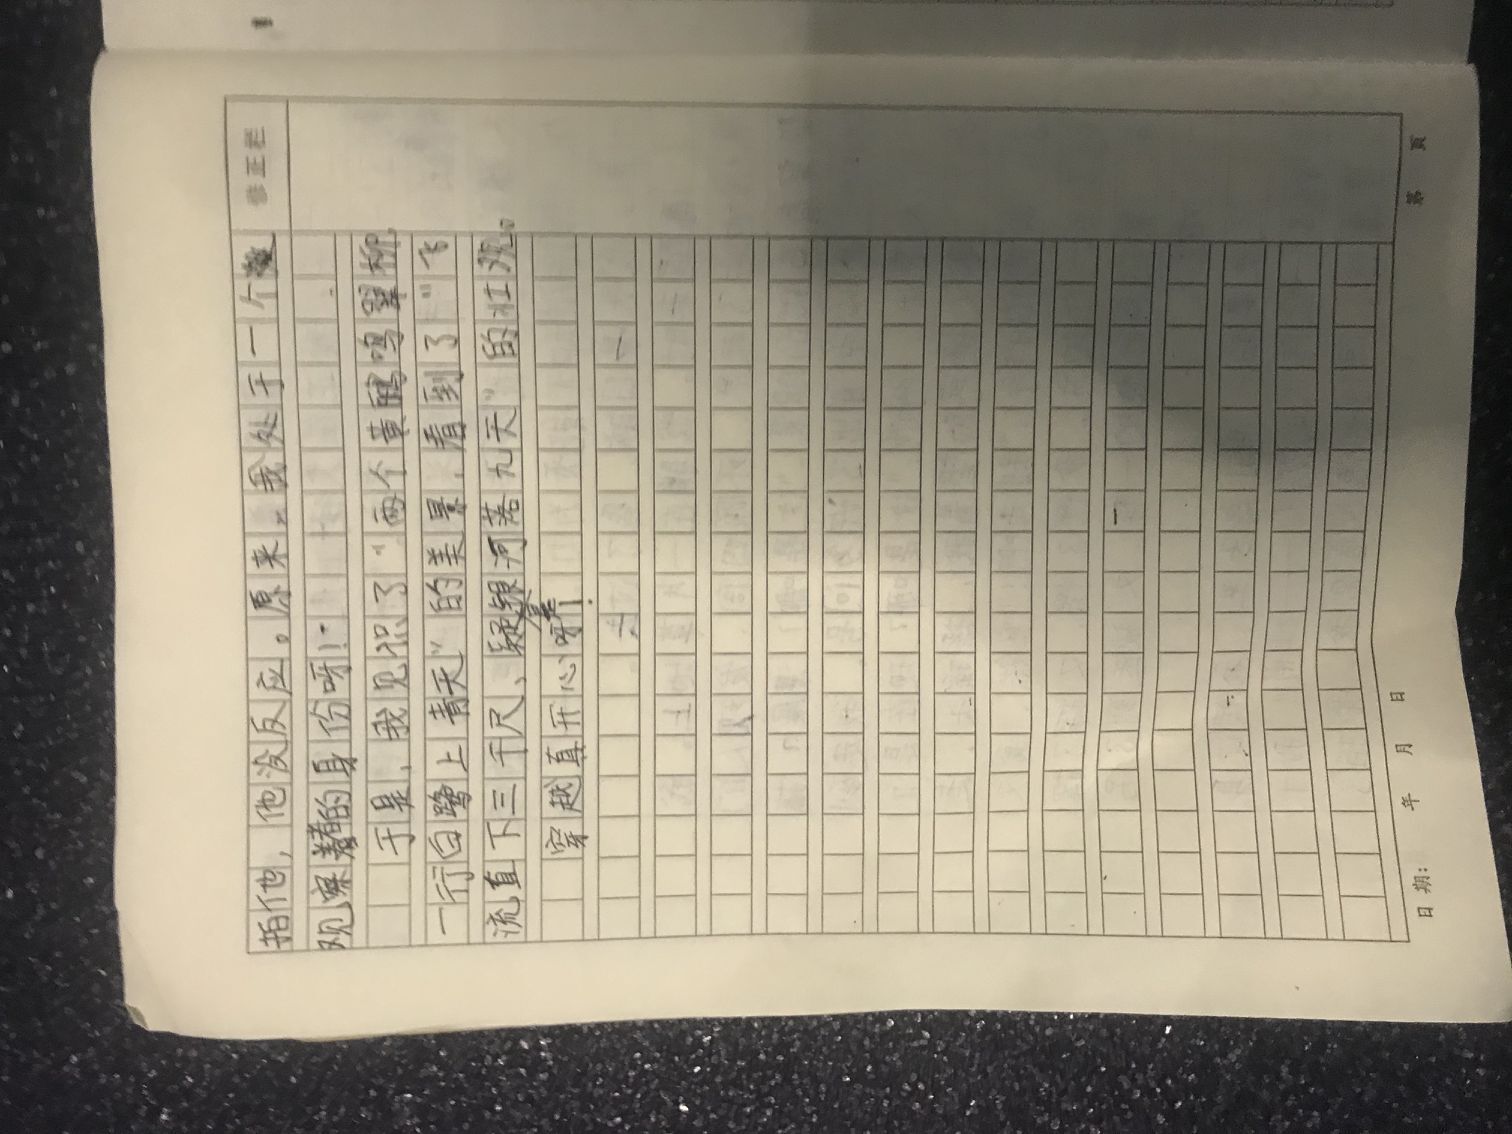 修正栏
拍他，他没反应。原来，我处于一个
观察着的身份呀！
于是，我见识了“两个黄鹂鸣翠柳，
一行白鹭上青天”的美景，看到了“飞
流直下三千尺，疑是银河落九天”的壮观。
穿越真开心呀！
日期： 年 月 日 第 页